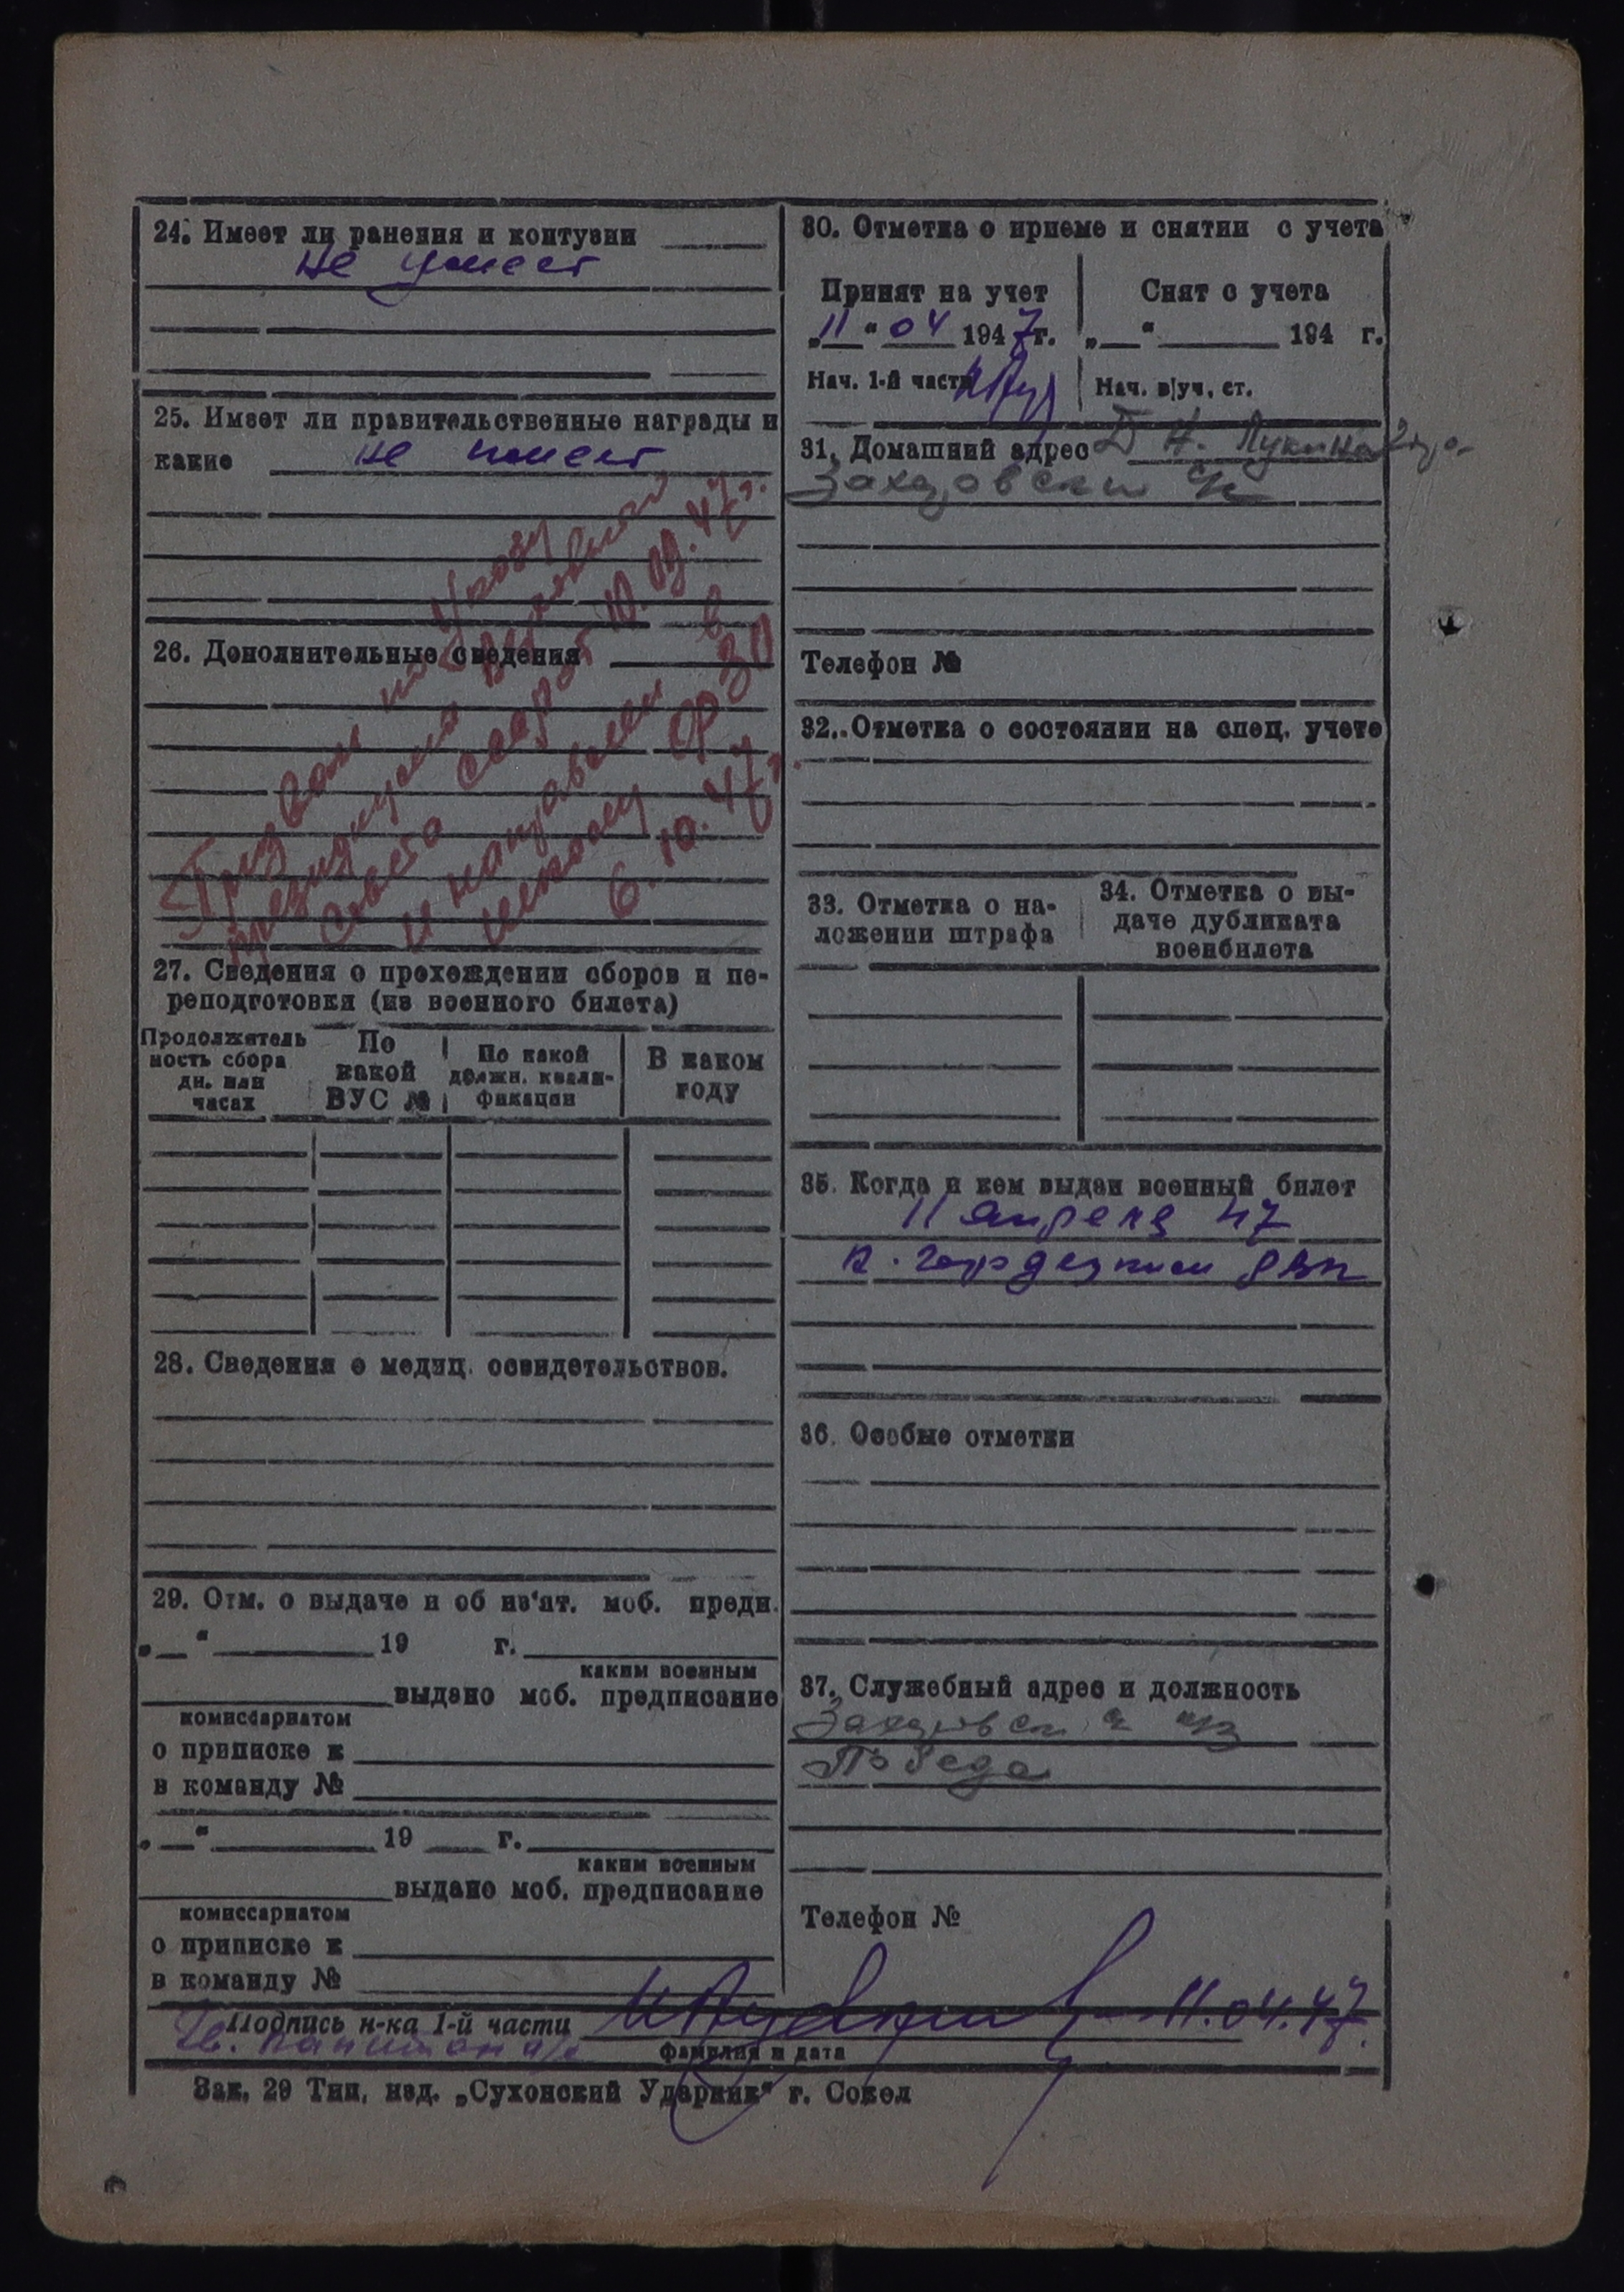 24. Имеет ли ранения и контузии
не имеет
25. Имеет ли правительственные награды и
какие не имеет
26. Дополнительные сведения
Призван по Указу
президиума Верховной
Совета СССР от 10.09.47г.
и направлен в
школу ФЗО
6.10.47г.
27. Сведения о прохождении сборов и пе-
реподготовки (из военного билета)
Продолжитель
ность сбора
дн. или
часах
По
какой
ВУС №
По какой
должн. квали-
фикации
В каком
году
28. Сведения о медиц. освидетельствов.
29. Отм. о выдаче и об из'ят. моб. предп.
„ “ 19 г.
каким военным
выдано моб. предписание
комиссариатом
о приписке к
в команду №
„ “ 19 г.
каким военным
выдано моб. предписание
комиссариатом
о приписке к
в команду №
30. Отметка о приеме и снятии с учета
Принят на учет
„11“ 04 1947г.
Нач. 1-й части
Снят с учета
„ “ 194 г.
Нач. в/уч. ст.
31. Домашний адрес Д Н.
Телефон №
32. Отметка о состоянии на спец. учете
33. Отметка о на-
ложении штрафа
34. Отметка о вы-
даче дубликата
военбилета
35. Когда и кем выдан военный билет
11 апреля 47
РВК
36. Особые отметки
37. Служебный адрес и должность
Победа
Телефон №
Подпись н-ка 1-й части 11.04.47
Гв. капитан а/с
фамилия и дата
Зак. 29 Тип. изд. „Сухонский Ударник“ г. Сокол